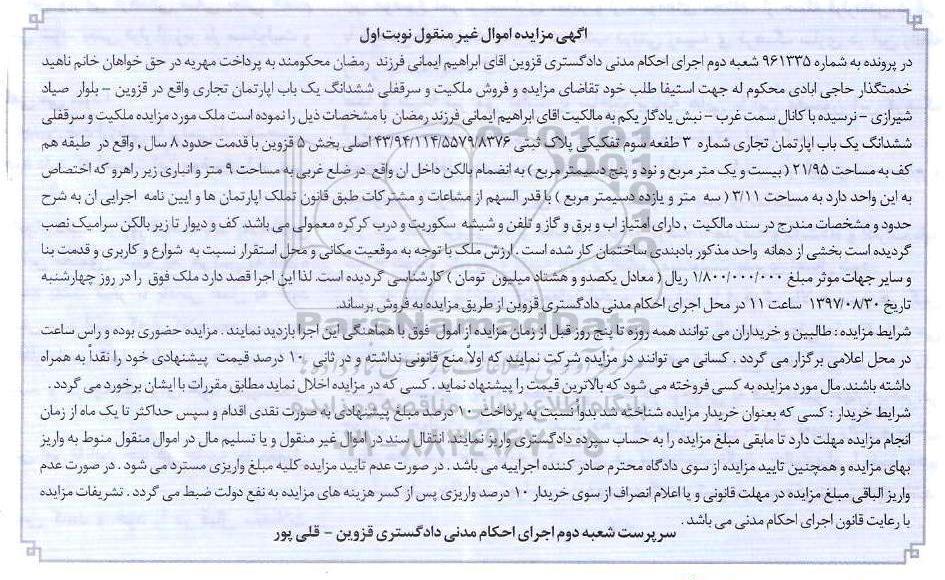 آگهی مزایده اموال غیر منقول نوبت اول
در پرونده به شماره ۹۶۱۳۳۵ شعبه دوم اجرای احکام مدنی دادگستری قزوین آقای ابراهیم ایمانی فرزند رمضان محکومند به پرداخت مهریه در حق خواهان خانم ناهید
خدمتگذار حاجی ابادی محکوم له جهت استیفا طلب خود تقاضای مزایده و فروش ملکیت و سرقفلی ششدانگ یک باب اپارتمان تجاری واقع در قزوین – بلوار صیاد
شیرازی – نرسیده با کانال سمت غرب – نبش یادگار یکم به مالکیت اقای ابراهیم ایمانی فرزند رمضان با مشخصات ذیل را نموده است ملک مورد مزایده ملکیت و سرقفلی
ششدانگ یک باب اپارتمان تجاری شماره ۳ طعفه سوم تفکیکی پلاک ثبتی ۴۳/۹۴/۱۱۴/۵۵۷۹/۸۳۷۶ اصلی بخش ۵ قزوین با قدمت حدود ۸ سال , واقع در طبقه هم
کف به مساحت ۲۱/۹۵ ( بیست و یک متر مربع و نود و پنج دسیمتر مربع ) به انضمام بالکن داخل ان واقع در ضلع غربی به مساحت ۹ متر و انباری زیر راهرو که اختصاص
به این واحد دارد به مساحت ۳/۱۱ ( سه متر و یازده دسیمتر مربع ) با قدر السهم از مشاعات و مشترکات طبق قانون تملک اپارتمان ها و ایین نامه اجرایی ان به شرح
حدود و مشخصات مندرج در سند مالکیت , دارای امتیاز اب و برق و گاز و تلفن و شیشه سکوریت و درب کرکره معمولی می باشد. کف و دیوار تا زیر بالکن سرامیک نصب
گردیده است بخشی از دهانه واحد مذکور بادبندی ساختمان کار شده است . ارزش ملک با توجه به موقعیت مکانی و محل استقرار نسبت به شوارع و کاربری و قدمت بنا
و سایر جهات موثر مبلغ ۱/۸۰۰/۰۰۰/۰۰۰ ریال ( معادل یکصدو و هشتاد میلیون تومان ) کارشناسی گردیده است. لذا این اجرا قصد دارد ملک فوق را در روز چهارشنبه
تاریخ ۱۳۹۷/۰۸/۳۰ ساعت ۱۱ در محل اجرای احکام مدنی دادگستری قزوین از طریق مزایده به فروش برساند.
شرایط مزایده : طالبین و خریداران می توانند همه روزه تا پنج روز قبل از زمان مزایده از اموال فوق با هماهنگی این اجرا بازدید نمایند . مزایده حضوری بوده و راس ساعت
در محل اعلامی برگزار می گردد . کسانی می توانند در مزایده شرکت نمایند که اولاً منع قانونی نداشته و در ثانی ۱۰ درصد قیمت پیشنهادی خود را نقداً به همراه
داشته باشند. مال مورد مزایده به کسی فروخته می شود که بالاترین قیمت را پیشنهاد نماید . کسی که در مزایده اخلال نماید مطابق مقررات با ایشان برخورد می گردد .
شرایط خریدار : کسی که بعنوان خریدار مزایده شناخته شد بدواً نسبت به پرداخت ۱۰ درصد مبلغ پیشنهادی به صورت نقدی اقدام و سپس حداکثر تا یک ماه از زمان
انجام مزایده مهلت دارد تا مابقی مبلغ مزایده را به حساب سپرده دادگستری واریز نمایند. انتقال سند در اموال غیر منقول و یا تسلیم مال در اموال منقول منوط به واریز
بهای مزایده و همچنین تایید مزایده از سوی دادگاه محترم صادر کننده اجراییه می باشد . در صورت عدم تایید مزایده کلیه مبلغ واریزی مسترد می شود . در صورت عدم
واریز الباقی مبلغ مزایده در مهلت قانونی و یا اعلام انصراف از سوی خریدار ۱۰ درصد واریزی پس از کسر هزینه های مزایده به نفع دولت ضبط می گردد . تشریفات مزایده
با رعایت قانون اجرای احکام مدنی می باشد .
سرپرست شعبه دوم اجرای احکام مدنی دادگستری قزوین – قلی پور
ParsNamadData